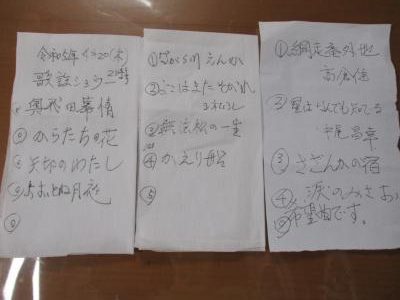 令和5年4/20(木)
歌謡ショウ 21時
① 奥飛騨慕情
② からたちの花
③ 矢切のわたし
④ おおとね月夜
⑤
① ながら川えんか
② ここはまただそがれ
③ 無法松の一生
④ かえり船
⑤
① 網走番外地
高倉健
② 星はなんでも知てる
平尾昌章
③ さざんかの宿
④ 涙のみさお
⑤ 希望曲です。